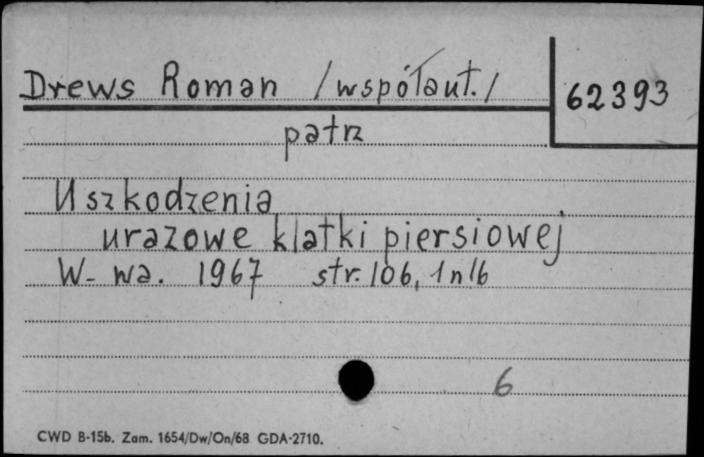 Drews Roman /współaut./
62393
patrz
Uszkodzenia
urazowe klatki piersiowej
W-wa. 1967 str. 106, 1 nlb
6
CWD B-15b. Zam. 1654/Dw/On/68 GDA-2710.